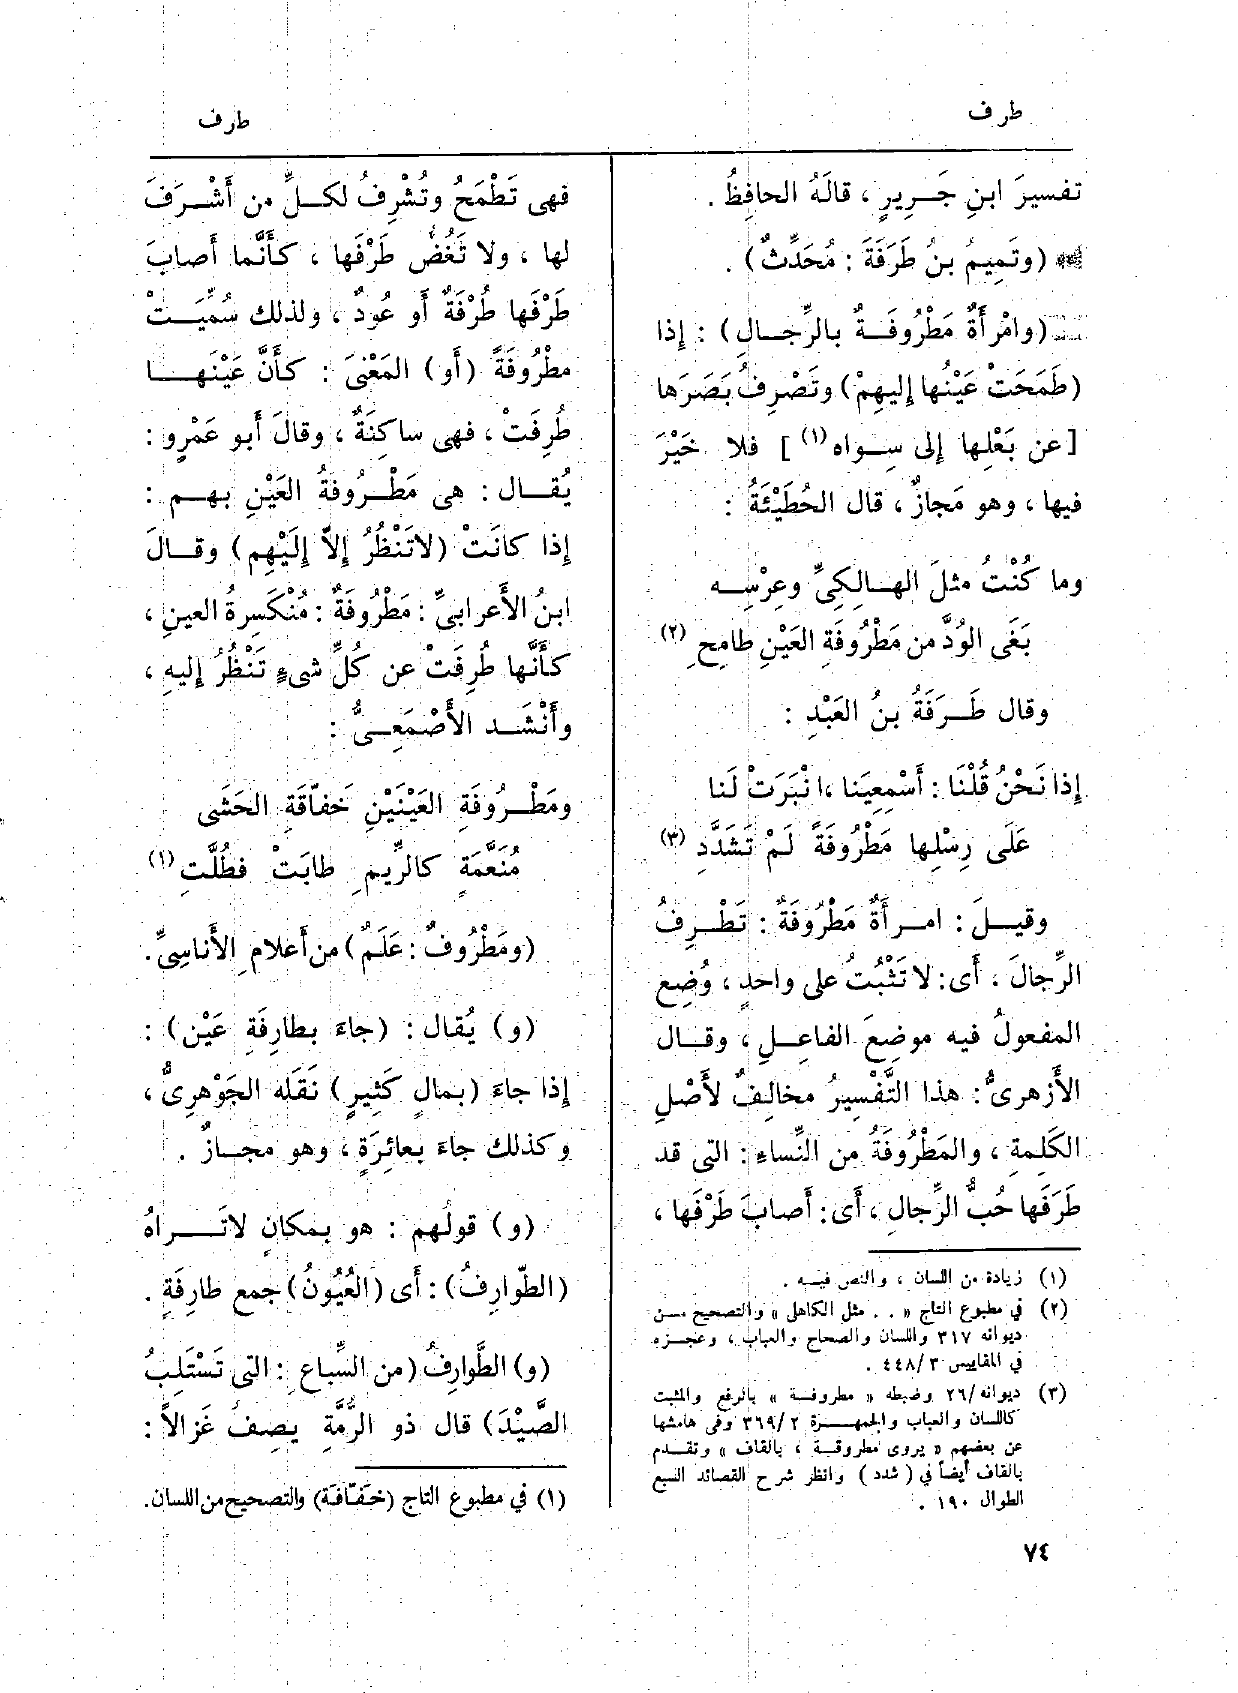 طرف
طرف
تفسيرَ ابنِ جَــرِيرٍ ، قالَهُ الحافِظُ .
(وتَمِيمُ بنُ طَرَفَةَ : مُحَدِّثٌ) .
(وامْرأَةٌ مَطْرُوفَــةٌ بالرِّجـالِ) : إذا
(طَمَحَتْ عَيْنُها إليهِمْ) وتَصْرِفُ بَصَرَها
[عن بَعْلِها إلى سِــواه(١) ] فلا خَيْرَ
فيها ، وهو مَجازٌ ، قال الحُطَيْئَةُ :
وما كُنْتُ مثلَ الهـالِكِيِّ وعِرْسِــه
بَغَى الوُدَّ من مَطْرُوفَةِ العَيْنِ طامِحِ (٢)
وقال طَــرَفَةُ بنُ العَبْدِ :
إذا نَحْنُ قُلْنَا : أَسْمِعِينَا ،انْبَرَتْ لَنا
عَلَى رِسْلِها مَطْرُوفَةً لَمْ تَشَدَّدِ (٣)
وقيــلَ : امــرأَةٌ مَطْرُوفَةٌ : تَطْــرِفُ
الرِّجالَ . أَى: لا تَثْبُتُ على واحدٍ ، وُضِع
المفعولُ فيه موضِعَ الفاعِــلِ ، وقــال
الأَزهرىُّ : هذا التَّفْسِيرُ مخالِفٌ لأَصْلِ
الكَلِمةِ ، والمَطْرُوفَةُ من النِّساءِ : التى قد
طَرَفَها حُبُّ الرِّجالِ ، أَى: أَصابَ طَرْفَها ،
(١) زيادة من اللسان ، والنص فيــه .
(٢) في مطبوع التاج « . . مثل الكاهلى » والتصحيح مــن
ديوانه ٣١٧ واللسان والصحاح والعباب ، وعجــزه
في المقاييس ٤٤٨/٣ .
(٣) ديوانه/٢٦ وضبطه « مطروفــة » بالرفع والمثبت
كاللسان والعباب والجمهــرة ٣٦٩/٢ وفى هامشها
عن بعضهم « يروى مطروقــة ، بالقاف » وتقــدم
بالقاف أيضاً في ( شدد ) وانظر شرح القصائد السبع
الطوال ١٩٠ .
فهى تَطْمَحُ وتُشْرِفُ لكــلِّ من أَشْــرَفَ
لها ، ولا تَغُضُّ طَرْفَها ، كأَنَّما أَصابَ
طَرْفَها طُرْفَةٌ أَو عُودٌ ، ولذلك سُمِّيَــتْ
مطْرُوفَةً (أَو) المَعْنَى : كأَنَّ عَيْنَهــا
طُرِفَتْ ، فهى ساكِنَةٌ ، وقالَ أَبو عَمْرٍو :
يُقــال : هى مَطْــرُوفَةُ العَيْنِ بهــم :
إذا كانَتْ (لاتَنْظُرُ إلاَّ إلَيْهِم) وقــالَ
ابنُ الأَعرابىِّ : مَطْرُوفَةٌ : مُنْكَسِرةُ العينِ ،
كأَنَّها طُرِفَتْ عن كُلِّ شىءٍ تَنْظُرُ إليهِ ،
وأَنْشَــد الأَصْمَعِــىُّ :
ومَطْــرُوفَةِ العَيْنَيْنِ خَفاّقَةِ الحَشَى
مُنَعَّمَةٍ كالرِّيمِ طابَتْ فطُلَّتِ (١)
(ومَطْرُوفٌ : عَلَمٌ) من أَعلامِ الأَناسِىِّ .
(و) يُقال : (جاءَ بطارِفَةِ عَيْن) :
إذا جاءَ (بمالٍ كَثِيرٍ) نَقَلَه الجَوْهرِىُّ ،
وكذلك جاءَ بعائِرَةٍ ، وهو مجــازٌ .
(و) قولُهم : هو بمكانٍ لاتَــراهُ
(الطّوارِفُ) : أَى (العُيُونُ) جمع طارِفَةٍ .
(و) الطَّوارِفُ (من السِّباعِ : التى تَسْتَلِبُ
الصَّيْدَ) قال ذو الرُّمَّةِ يصِفُ غَزالاً :
(١) في مطبوع التاج (خَفّافَة) والتصحيح من اللسان .
٧٤